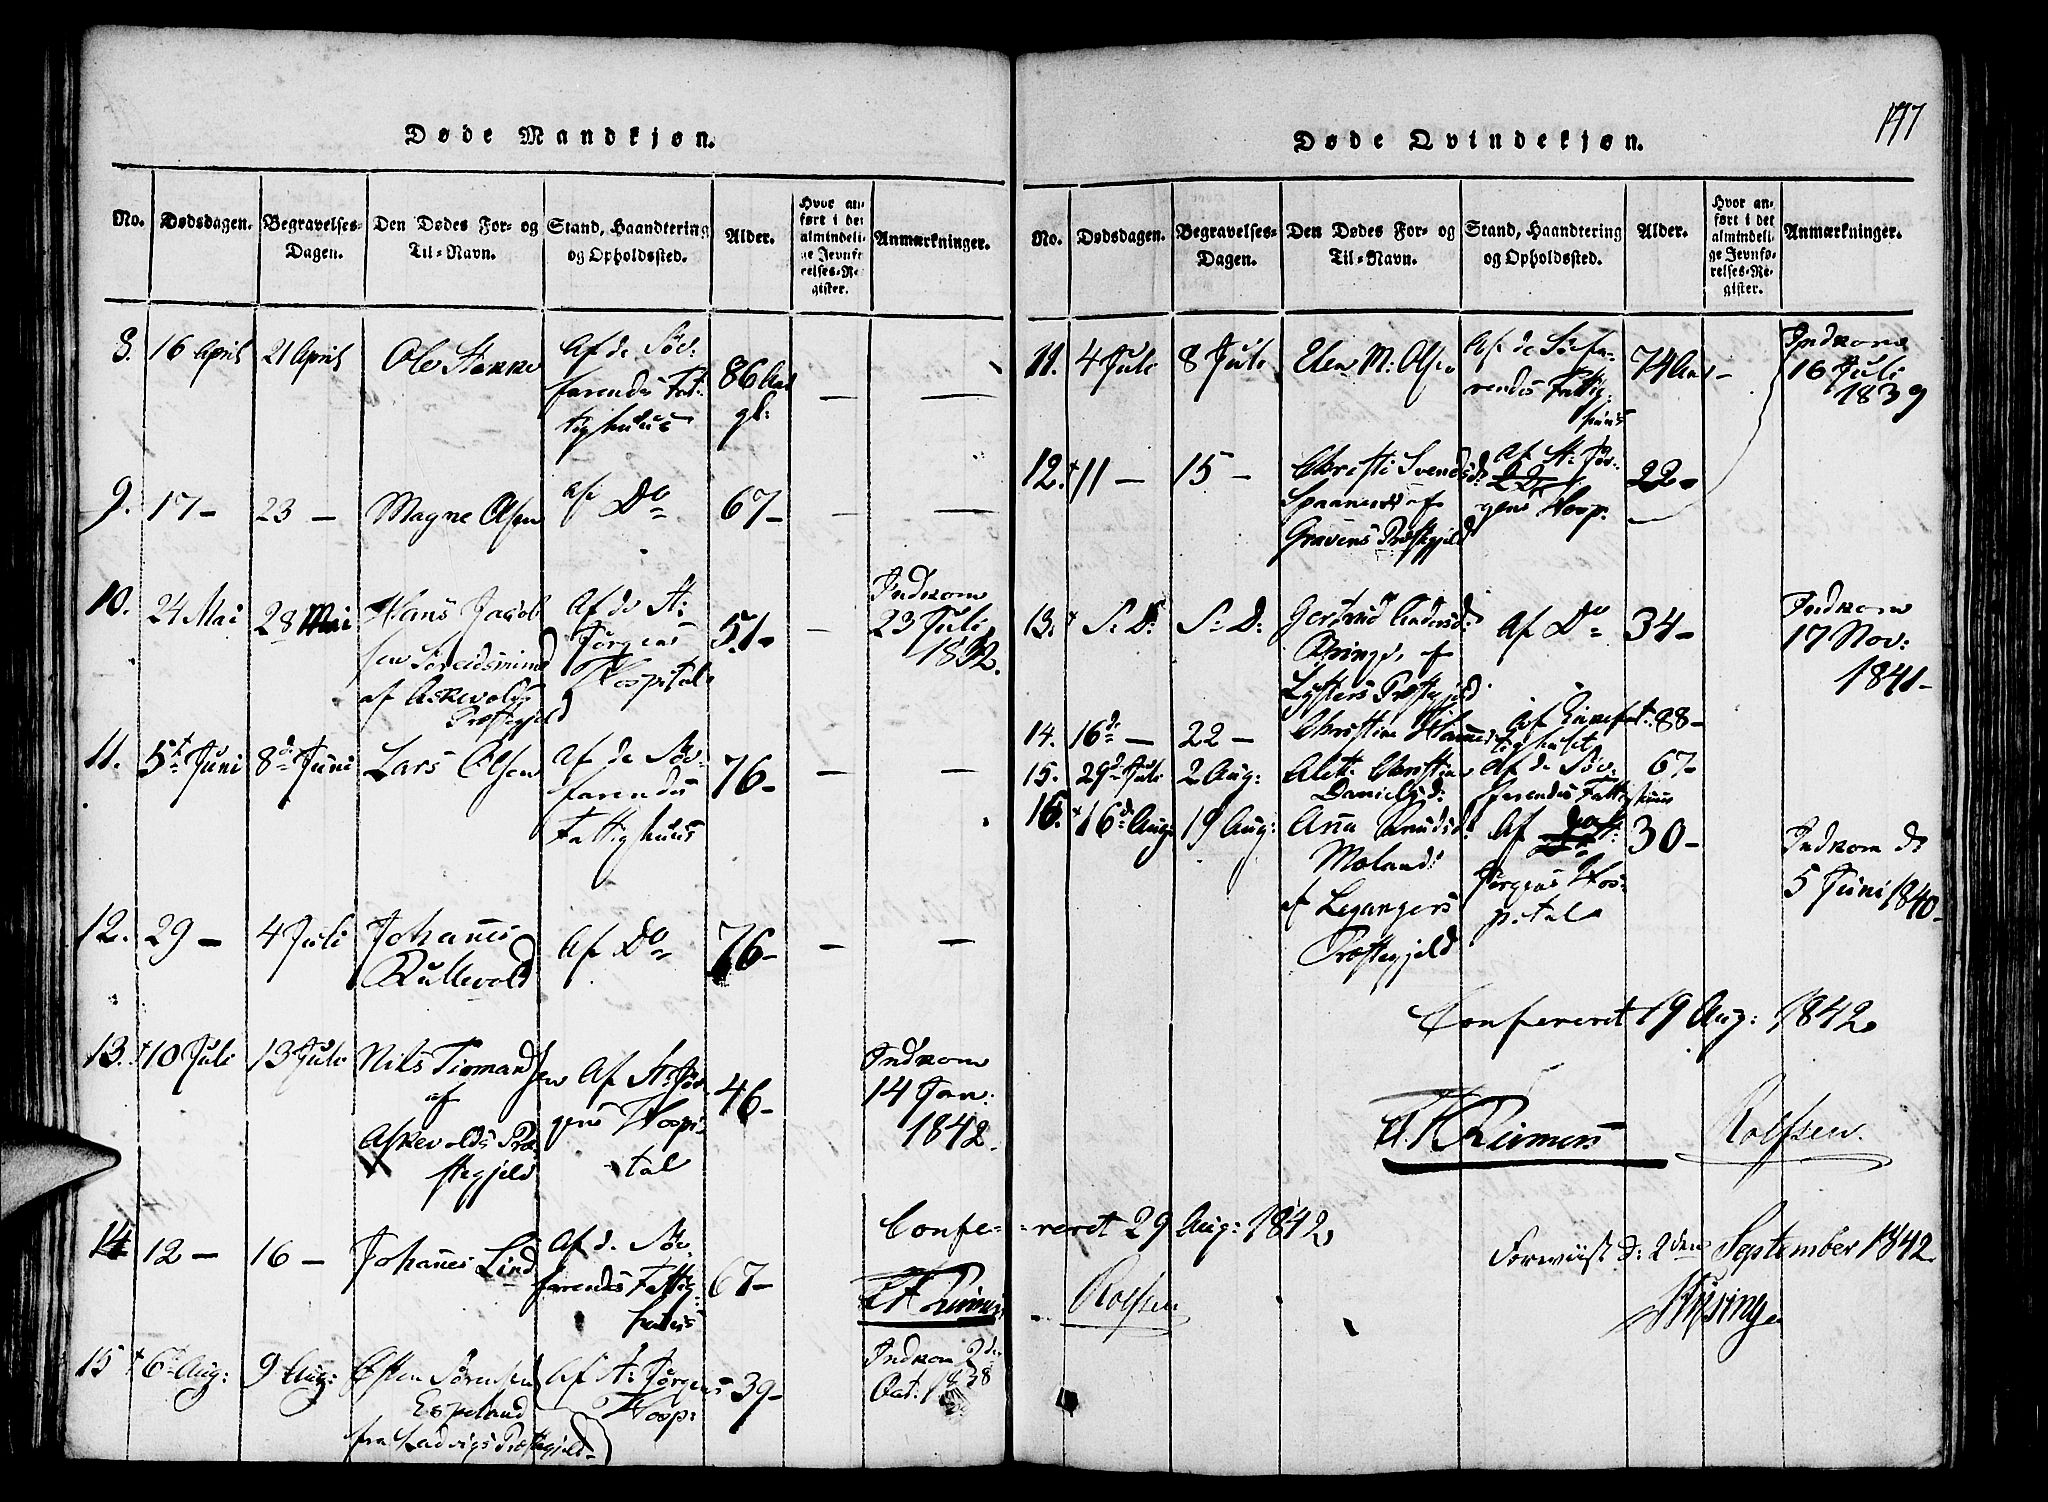 177
Døde Mandkjøn.
No. Dødsdagen. Begravelses-Dagen. Den Dødes For- og Til-Navn. Stand, Haandtering og Opholdssted. Alder. Hvor anført i det almindelige Jevnførelses-Register. Anmærkninger.
8. 16 April 21 April Ole
Af de Søe-
farendes Fat-
tighuus
86 Aar
gl:
— —
9. 17 — 23 — Magne Olsen af Do 67 — — —
10. 24 Mai 28 Mai Hans Jacob
sen
af Askevolds
Præstegjeld
Af de St:
Jørgens
Hospital
51 — —
Indkom
23 Juli
1832.
11. 5t Juni 8d Juni Lars Olsen
Af de Søe-
farendes
Fattighuus
76 — — —
12. 29 — 4 Juli Johannes
Rullevold
Af Do 76 — — —
13. † 10 Juli 13 Juli Nils
af
Askevolds Præ-
stegjeld
Af St: Jør-
gens Hospi-
tal
46 —
Indkom
14 Jan:
1842.
14 12 — 16 — Johannes Lind
Af de Søe-
farendes Fattig-
huus
67 —
15 † 6t Aug: 9 Aug: Østen Sørensen
Espeland
fra Ladvigs Præstegjeld
Af St: Jørgens
Hosp:
39 —
Indkom 2den
Oct: 1838
Døde Qvindekjøn.
No. Dødsdagen. Begravelses-Dagen. Den Dødes For- og Til-Navn. Stand, Haandtering og Opholdssted. Alder. Hvor anført i det almindelige Jevnførelses-Register. Anmærkninger.
11. 4 Juli 8 Juli Elen M: Olsen
Af de Søefa-
rendes Fattig-
huus
74 Aar —
Indkom
16 Juli
1839
12. † 11 — 15 — Christi Svendsd:
af
Gravens Præstegjeld
Af St: Jør-
gens Hosp:
22 —
13. † S: D: S: D: Gertrud Andersd:
af
Lysters Præstegjeld
Af Do 34 —
Indkom
17 Nov:
1841 —
14. 16de — 22 — Christine
Af
tighuset
88 —
15. 29d Juli 2 Aug: Alet: Christine
Danielsd:
Af de Søe-
farendes Fattighuus
67 —
16. † 16de Aug: 19 Aug: Anna Knudsd:
Mæland
af Legangers
Præstegjeld
Af St:
Jørgens Hos-
pital
30 —
Indkom d:
5 Juni 1840 —
Confereret 19 Aug: 1842.
Rolfsen.
Confe-reret 29 Aug: 1842,
Rolfsen
Foreviist d: 2den September 1842.